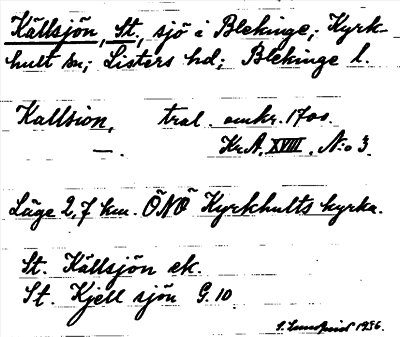 Källsjön, St., sjö i Blekinge; Kyrk-
hult sn; Listers hd; Blekinge l.
Kallsion, tral. omkr. 1700.
—. Kr.A. XVIII. N:o 3.
Läge 2,7 km. ÖNÖ Kyrkhults kyrka.
St. Källsjön ek.
St. Kjell sjön G.10
1936.